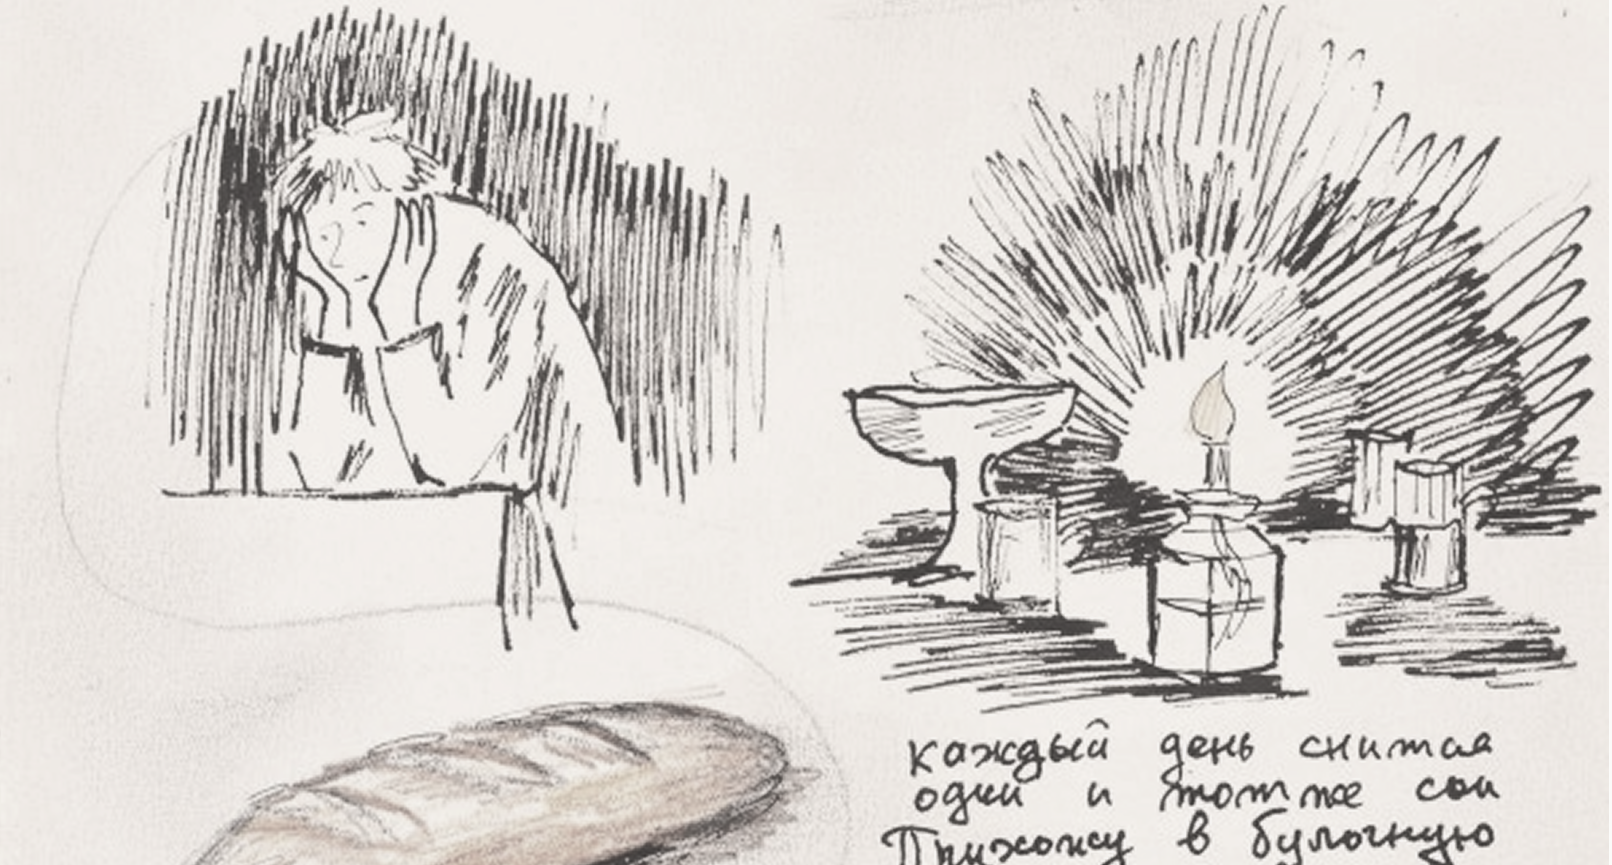 каждый день снится
один и тот же сон
Прихожу в булочную